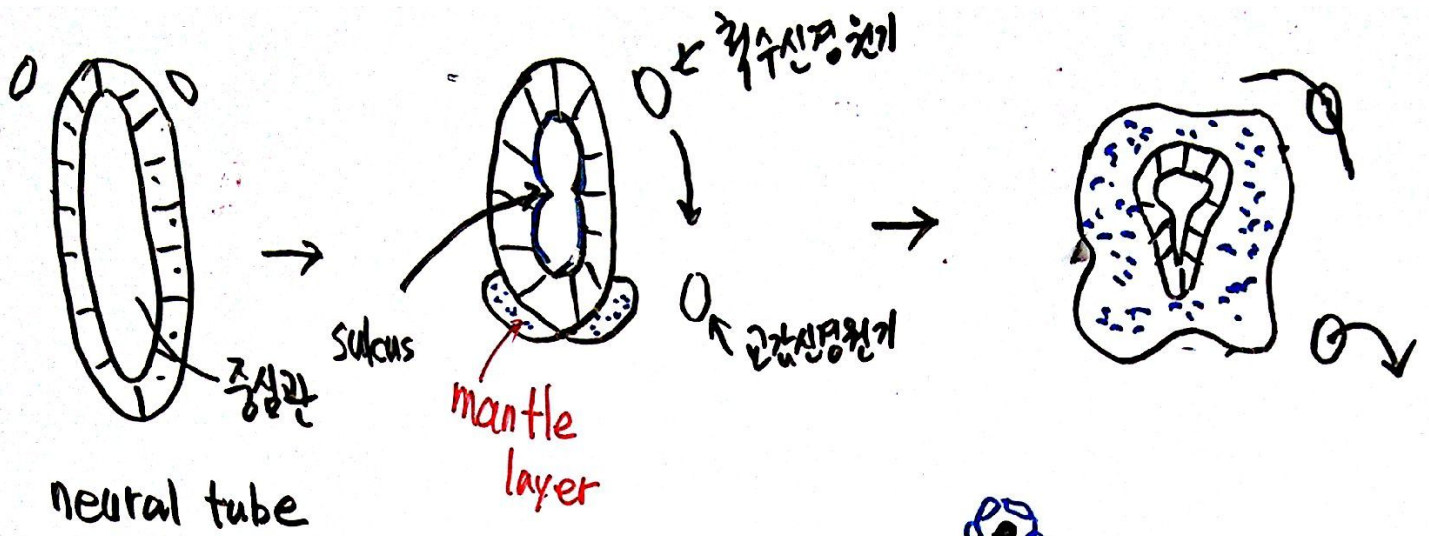 척수신경원기
sulcus
중심관
교감신경원기
mantle
layer
neural tube